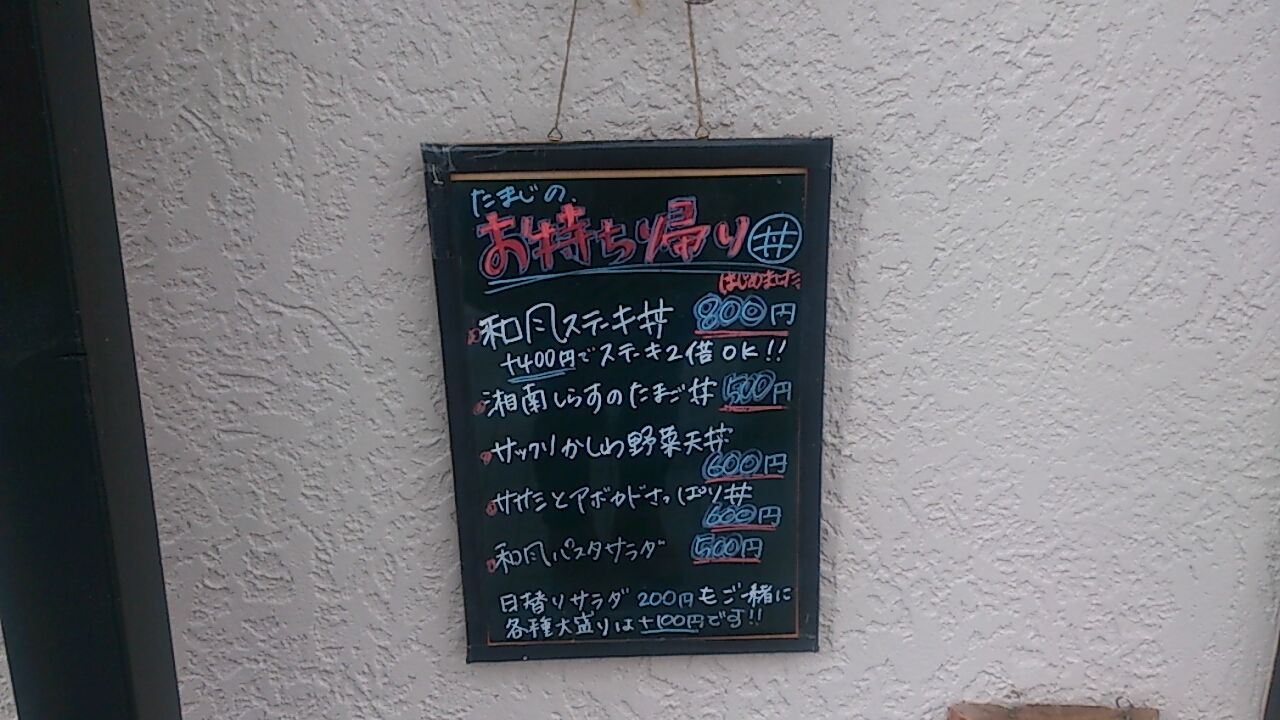 たまじの、
お持ち帰り丼
はじめました
和風ステーキ丼 800円
+400円でステーキ2倍OK!!
湘南しらすのたまご丼 500円
サックリかしわ野菜天丼
600円
ササミとアボカドさっぱり丼
600円
和風パスタサラダ 500円
日替りサラダ 200円もご一緒に
各種大盛りは+100円です!!